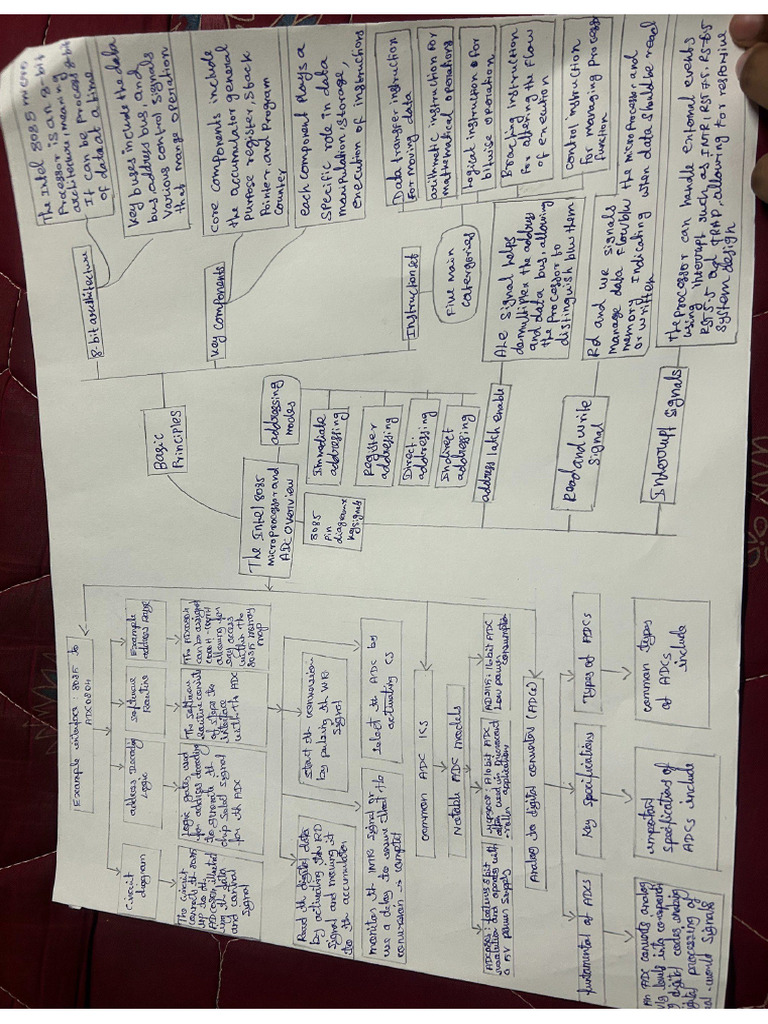 The Intel 8085
Microprocessor and
ADC overview
Basic
Principles
8-bit architecture
The Intel 8085 micro
Processor is an 8-bit
architecture, meaning
It can be Process 8-bit
of data at a time
Key buses include the data
bus, address bus, and
Various control signals
that mange operation
Key components
core components include
the accumulator general
Purpose register, Stack
Pointer and Program
Counter
each component Plays a
specific role in data
manipulation, storage,
execution of instructions
Instruction set
Five main
catergories
Data transfer-instruction
For moving data
arithmetic instruction for
mathematical operations
Logical instruction for
bitwise operation
Broching instruction
For altering the flow
of execution
control instruction
For managing process
function
addressing
modes
Immediate
addressing
Register
addressing
Direct
addressing
Indirect
addressing
8085
Pin
diagram
key signals
address latch enable
ALE Signal helps
demultiplex the address
and data bus, allowing
the Processor to
distinguish b/w them
Read and write
Signal
Rd and we signals
manage data flow b/w the microprocessor and
memory Indicating when data should be read
or written
Interrupt Signals
The Processor can handle external events
using interrupt such as INTR, RST 7.5, RST 6.5
RST 5.5 and TRAP, allowing for responsive
system design
Example interface: 8085 to
ADC0804
Circuit
diagram
The circuit
connects the 8085
up to the
ADC0804 illustrating
the data
and control
Signal
address Decoding
Logic
Logic gates are used
for address decoding
to generate the
chip Select Signal
for the ADC
Software
Routine
The software
Routine consist
of steps to
interface
with the ADC
Example
address range
The ADC0804
can be assigned
allowing for
easy access
within the
8085 memory
map
Start the conversion
by pulsing the WR
Signal
Read the digital data
by activating the RD
Signal and moving it
to the accumulator
Select the ADC by
activating CS
monitor the INTR signal or
use a delay to ensure that the
conversion is complete
common ADC ICs
Notable ADC models
ADC0804: features 8 bit
resolution and operates with
a 5V power supply
AD7715: 16 bit ADC
Low power
consumption
Analog to digital converter (ADCs)
fundamental of ADCs
Key Specifications
Types of ADCs
An ADC converts analog
digital codes, enabling
digital processing of
real-world signals
important
specifications of
ADCs include
common types
of ADCs
include